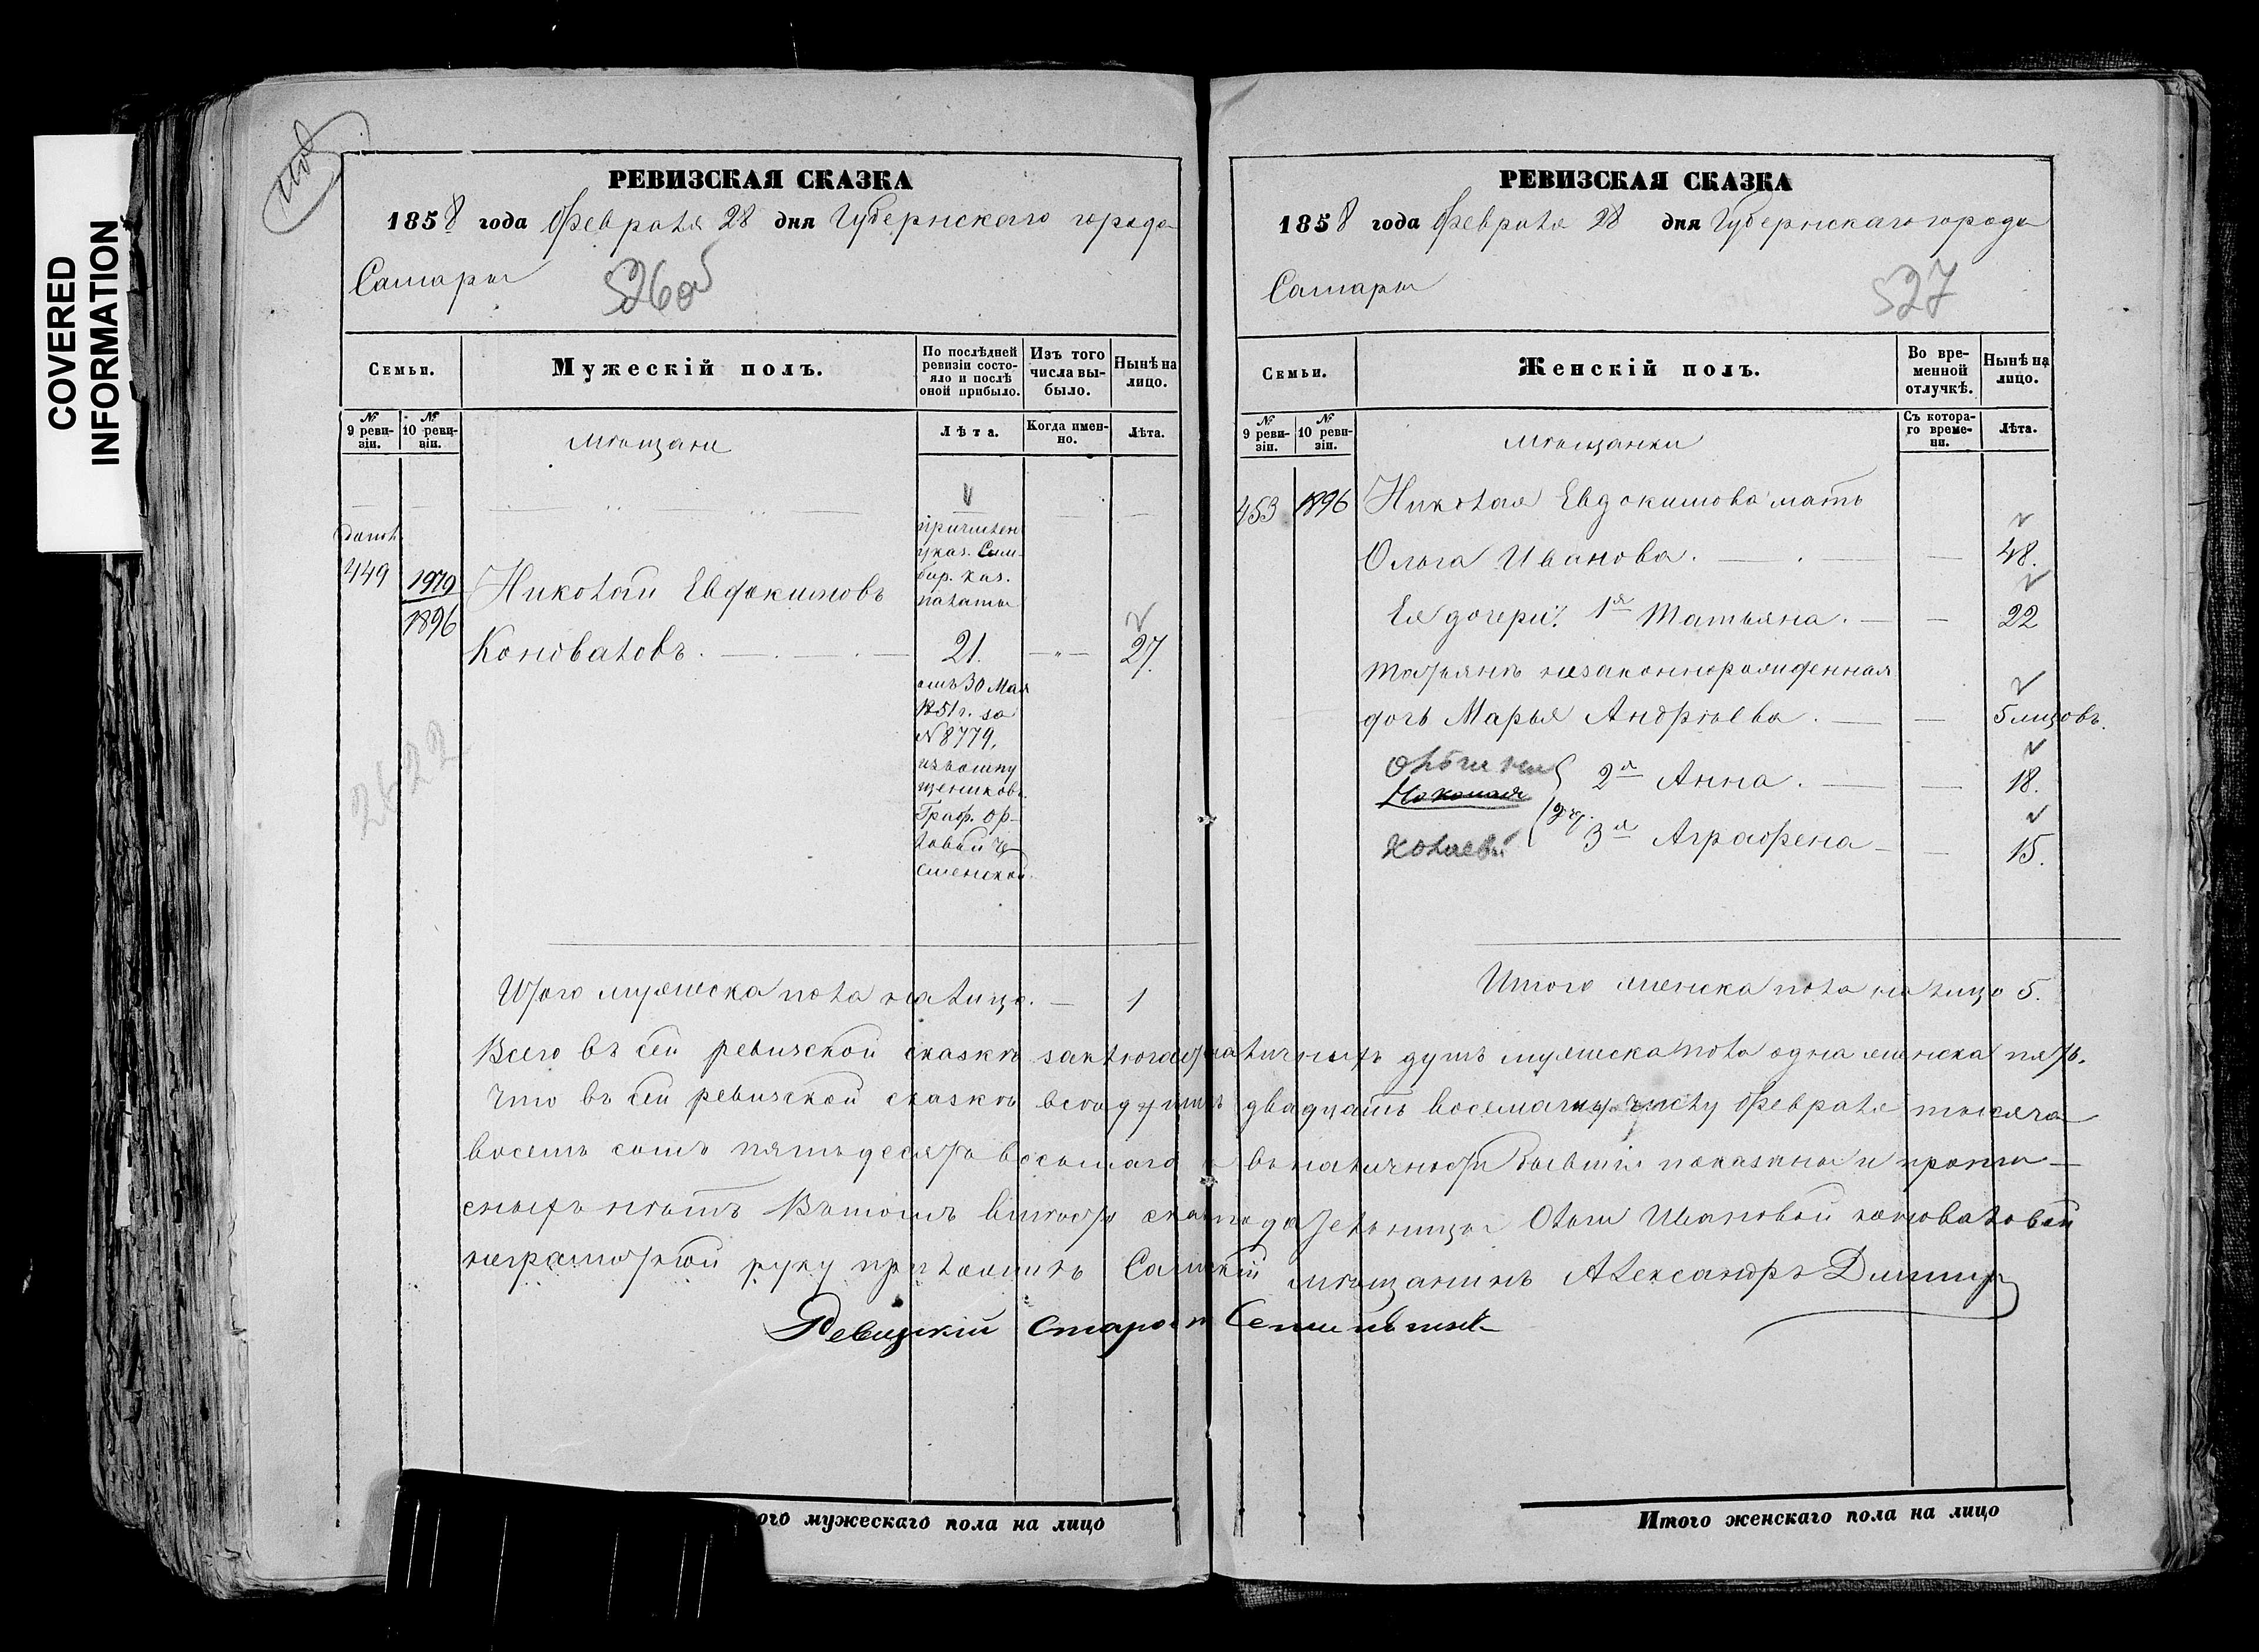 COVERED
INFORMATION
РЕВИЗСКАЯ СКАЗКА
1858 года Февраля 28 дня Губернскаго города
Самары 526об
Семьи.
Мужескій полъ.
По послѣдней ревизіи состояло и послѣ оной прибыло.
Изъ того числа выбыло.
Нынѣ на лицо.
№ 9 ревизіи.
№ 10 ревизіи.
мѣщане
Лѣта.
Когда именно.
Лѣта.
причислен
указ. Сим-
бир. каз.
палаты
449 1979 Николай Евдокимовъ
1896
Коноваловъ. 21. 27.
отъ 30 Мая
1851 г. за
№ 8779,
изъ отпу
щенниковъ
Граф. Ор-
ловой Че-
сменской.
2622
Итого мужеска пола на лицо. 1
РЕВИЗСКАЯ СКАЗКА
1858 года Февраля 28 дня Губернскаго города
Самары 527
Семьи.
Женскій полъ.
Во временной отлучкѣ.
Нынѣ на лицо.
№ 9 ревизіи.
№ 10 ревизіи.
мѣщанки
Съ котораго времени.
Лѣта.
453 1896 Николая Евдокимова мать
Ольга Иванова. 48.
Ея дочери: 1я Татьяна. 22
Татьянѣ незаконнорожденная
дочь Марья Андрѣева. 5 мицовъ.
2я Анна. 18.
3я Аграфена 15.
Итого женска пола на лицо 5.
Всего въ сей ревизской сказкѣ заключается наличныхъ душъ мужеска пола одна женска пять.
Что въ сей ревизской сказкѣ всѣ души двадцать восьмому числу Февраля тысяча
восемь сотъ пятьдесятъ восьмаго въ наличности бывшія показаны и пропи-
сныхъ нѣтъ Въ томъ вмѣсто сказкоподательницы Ольги Ивановой Коноваловой
неграмотной руку приложилъ Самскій мѣщанинъ Александръ
Ревизскій Староста
ого мужескаго пола на лицо
Итого женскаго пола на лицо